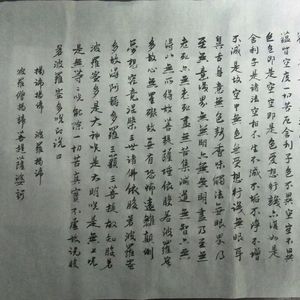 蘊皆空度一切苦厄舍利子色不異空空不異
色色即是空空即是色受想行識亦復如是
舍利子是諸法空相不生不滅不垢不淨不增
不減是故空中無色無受想行識無眼耳
鼻舌身意無色聲香味觸法無眼界乃
至無意識界無無明亦無無明盡乃至無
老死亦無老死盡無苦集滅道無智亦無
得以無所得故菩提薩埵依般若波羅蜜
多故心無罣礙無罣礙故無有恐怖遠離顛倒
夢想究竟涅槃三世諸佛依般若波羅蜜
多故得阿耨多羅三藐三菩提故知般若
波羅蜜多是大神咒是大明咒是無上咒
是無等等咒能除一切苦真實不虛故說般
若波羅蜜多咒即說咒曰
揭諦揭諦 波羅揭諦
波羅僧揭諦菩提薩婆訶